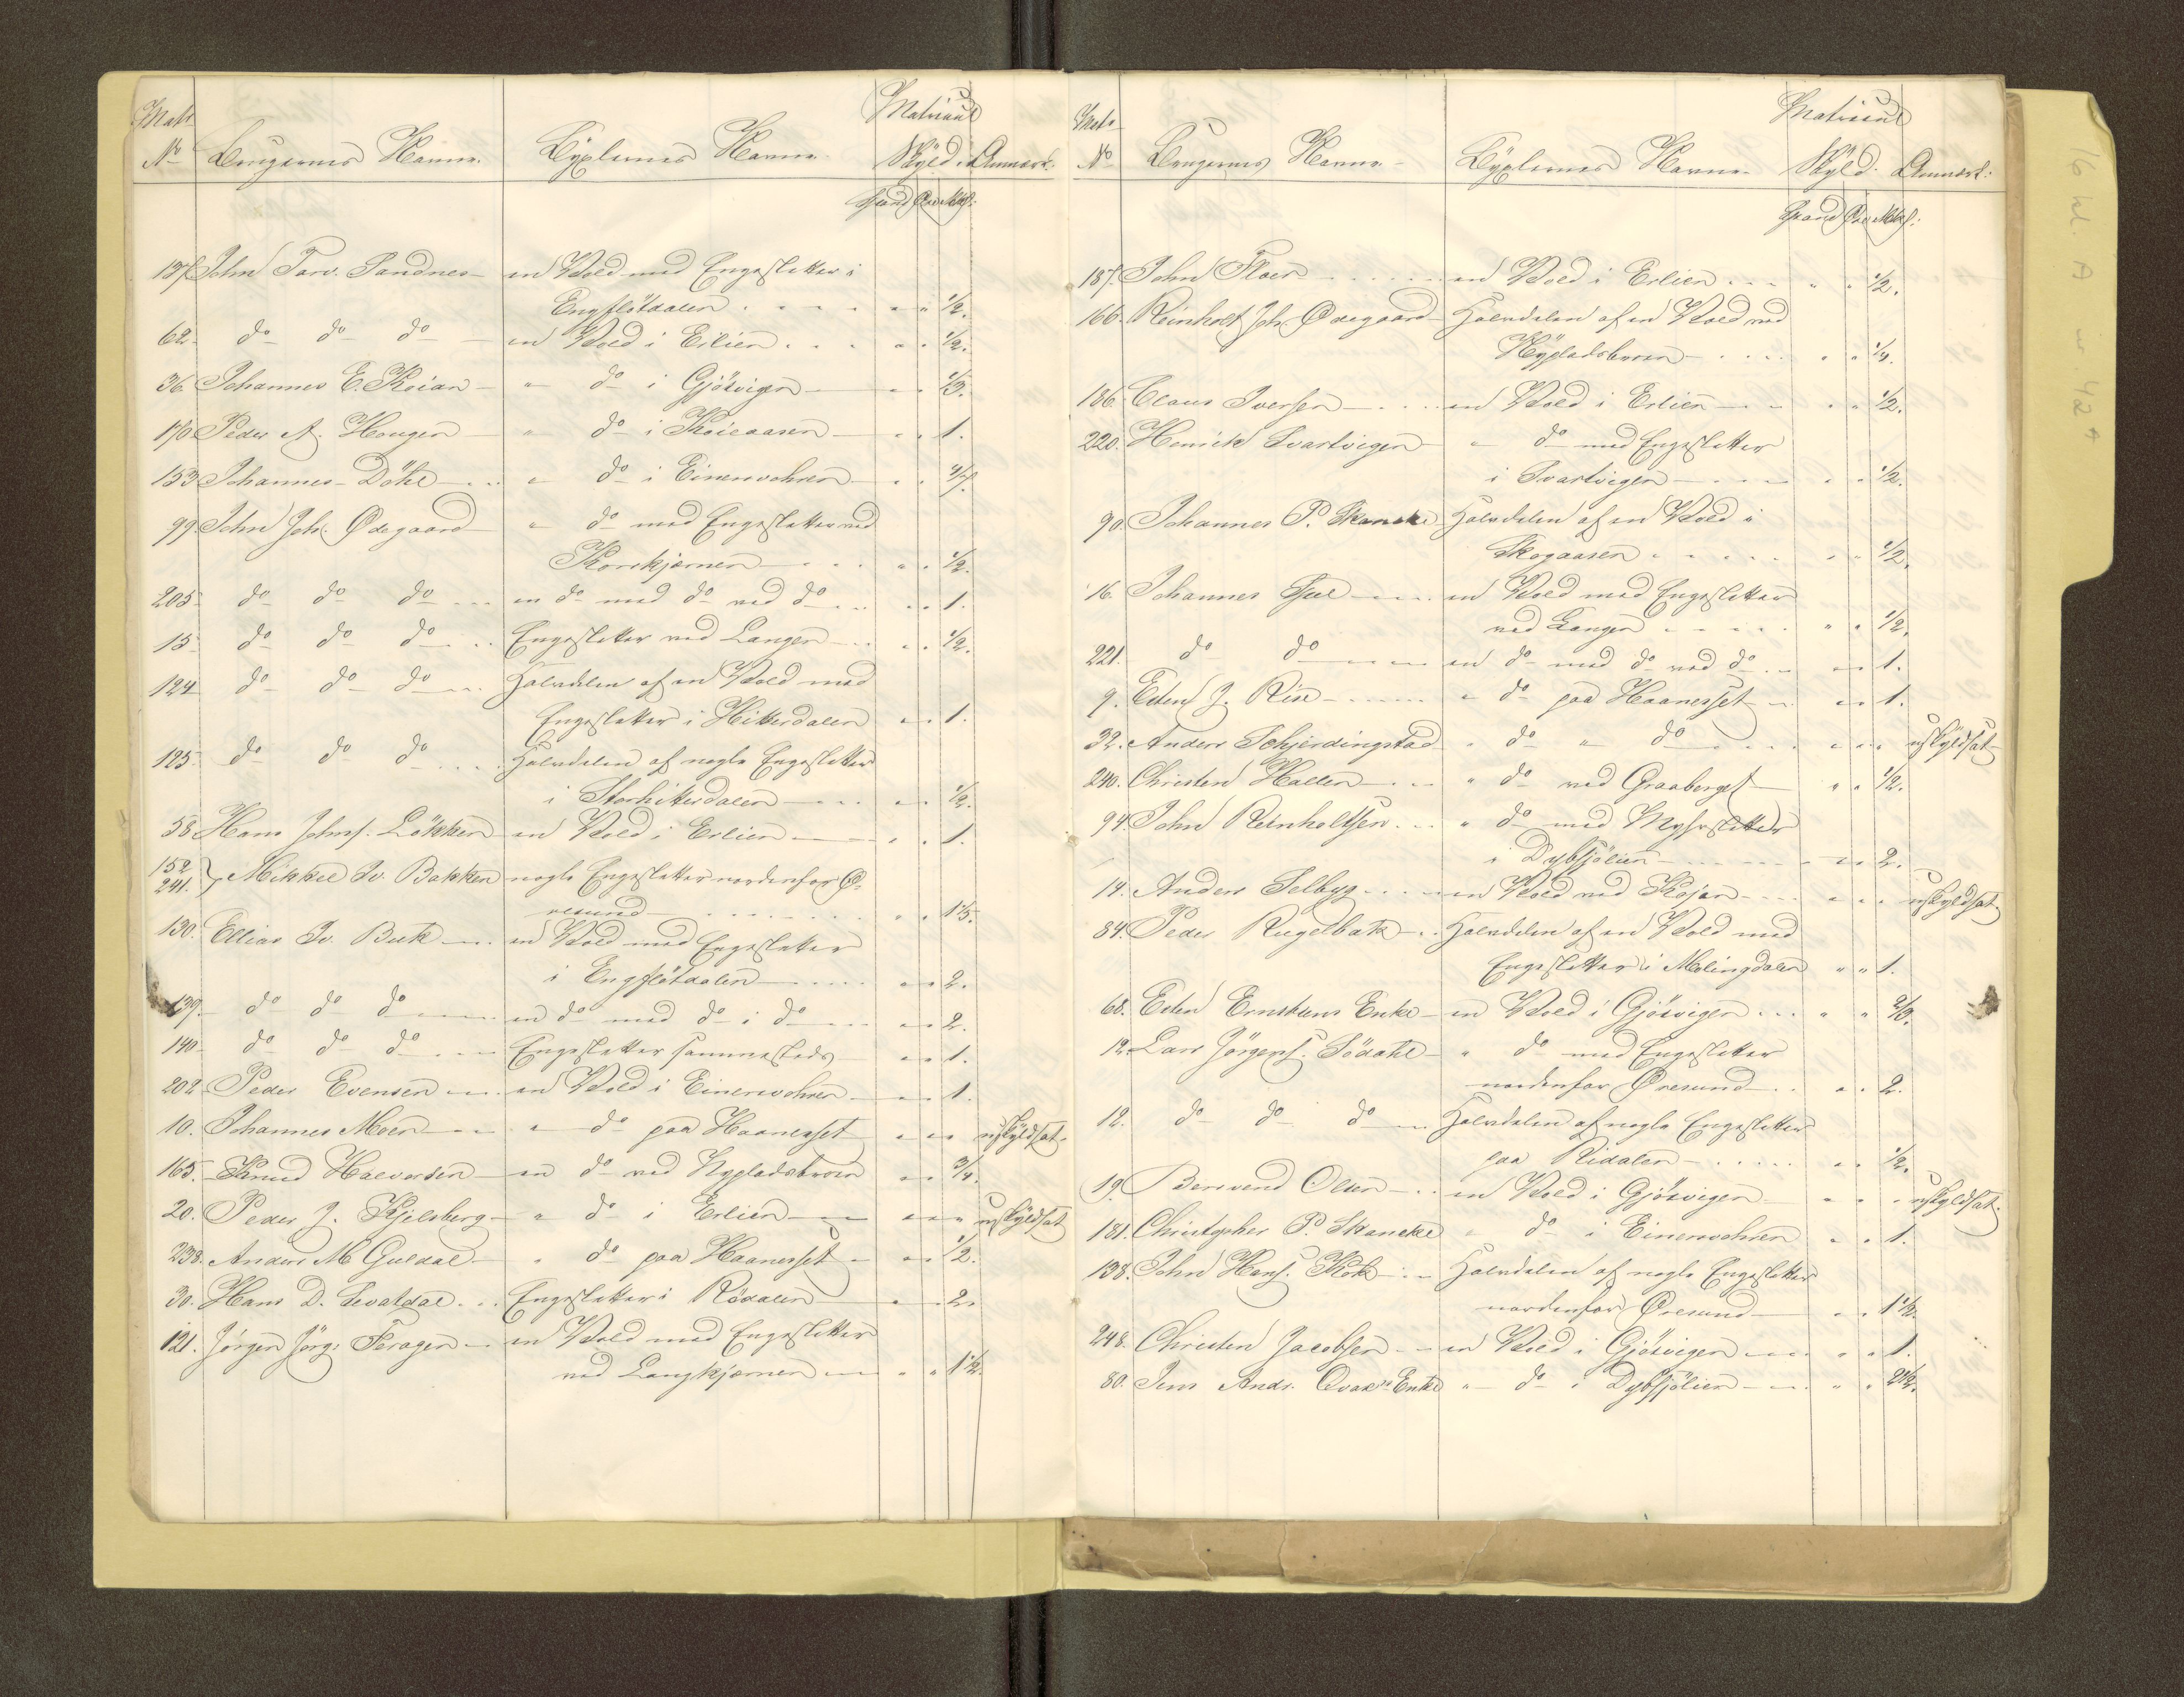 Matr. Matricul
No Brugernes Navne. Lyxlernes Navne. Skyld. Anmærk.
Spand Øre Mkl:
137 John Torv. Sandnes en Vold med Engesletter i
Engfløtdalen " " 1/2.
62. do do do en Vold i Erlien " " 1/2.
36. Johannes E. Koian " do i Gjösvigen " " 1/3.
170 Peder A. Hougen " do i Koieaasen " " 1.
153 Johannes Döhl " do i Einervohren " "
99. John Joh. Ødegaard " do med Engesletter ved
Korskjærnen " " 1/2.
205 do do do en do med do ved do " " 1.
15 do do do Engesletter ved Langen " " 1/2.
124 do do do Halvdelen af en Vold med
Engesletter i Hitterdalen " " 1.
125 do do do Halvdelen af nogle Engesletter
i Storhitterdalen " " 1/2.
58. Hans Johns. Løkken en Vold i Erlien " " 1.
152 241. } Mikkel Iv. Bakken nogle Engesletter nordenfor Ø-
resund " "
130. Ellias Iv. Buk en Vold med Engesletter
i Engfløtdalen " " 2.
139. do do do en do med do i do " " 2.
140 do do do Engesletter sammesteds " " 1.
202 Peder Evensen en Vold i Einervohren " " 1.
10. Johannes Moen " do paa Haanesset " " " uskyldsat.
165. Knud Halvorsen en do ved Nypladsbroen " " 3/4.
20. Peder J. Kjelsberg " do i Erlien " " " uskyldsat
238. Anders M Guldal " do paa Haanesset " " 1/2.
30. Hans D. Evaldal Engesletter i Rödalen " " 2.
121. Jørgen Jörg. Feragen en Vold med Engesletter
ved Langkjærnen " " 1 1/2.
Matr. Matricul
No Brugernes Navne. Lyxlernes Navne. Skyld. Anmærk:
Spand Øre Mkl:
187. John Floen en Vold i Erlien " " 1/2.
166. Reinholt Joh. Ødegaard Halvdelen af en Vold ved
Nypladsbroen " " 1/4.
186. Claus Iversen en Vold i Erlien " " 1/2.
220. Henrik Svartvigen " do med Engesletter
i Svartvigen " " 1/2.
90. Johannes P. Skancke Halvdelen af en Vold i
Skogaasen " " 1/2.
16. Johannes Hjul en Vold med Engesletter
ved Langen " " 1/2.
221. do do en do med do ved do " " 1.
9. Esten J. Rise " do paa Haanesset " " 1.
32. Anders Schjerdingstad " do " do " " " uskyldsat
240. Christen Hallen " do ved Graaberget " " 1/2.
94. John Reinholtsen " do med Myhrsletter
i Dybsjølien " " 2.
14. Anders Selbyg en Vold ved Kojan " " " uskyldsat.
84. Peder Rugelbak Halvdelen af en Vold med
Engesletter i Molingdalen " " 1.
68. Esten Ernstsens Enke en Vold i Gjösvigen " " 2/3.
12. Lars Jörgens. Södahl " do med Engesletter
nordenfor Øresund " " 2.
12. do do do Halvdelen af nogle Engesletter
paa Ridalen " " 1/2.
19. Berevend Olsen en Vold i Gjösvigen " " " uskyldsat.
181. Christopher P. Skancke " do i Einervohren " " 1.
138. John Hans. Kok Halvdelen af nogle Engesletter
nordenfor Øresund " " 1 1/2.
248. Christen Jacobsen en Vold i Gjösvigen " " 1.
80. Jens Andr. Qvaks Enke " do i Dybsjölien " " 2 1/2.
16 kl. A nr 42 A